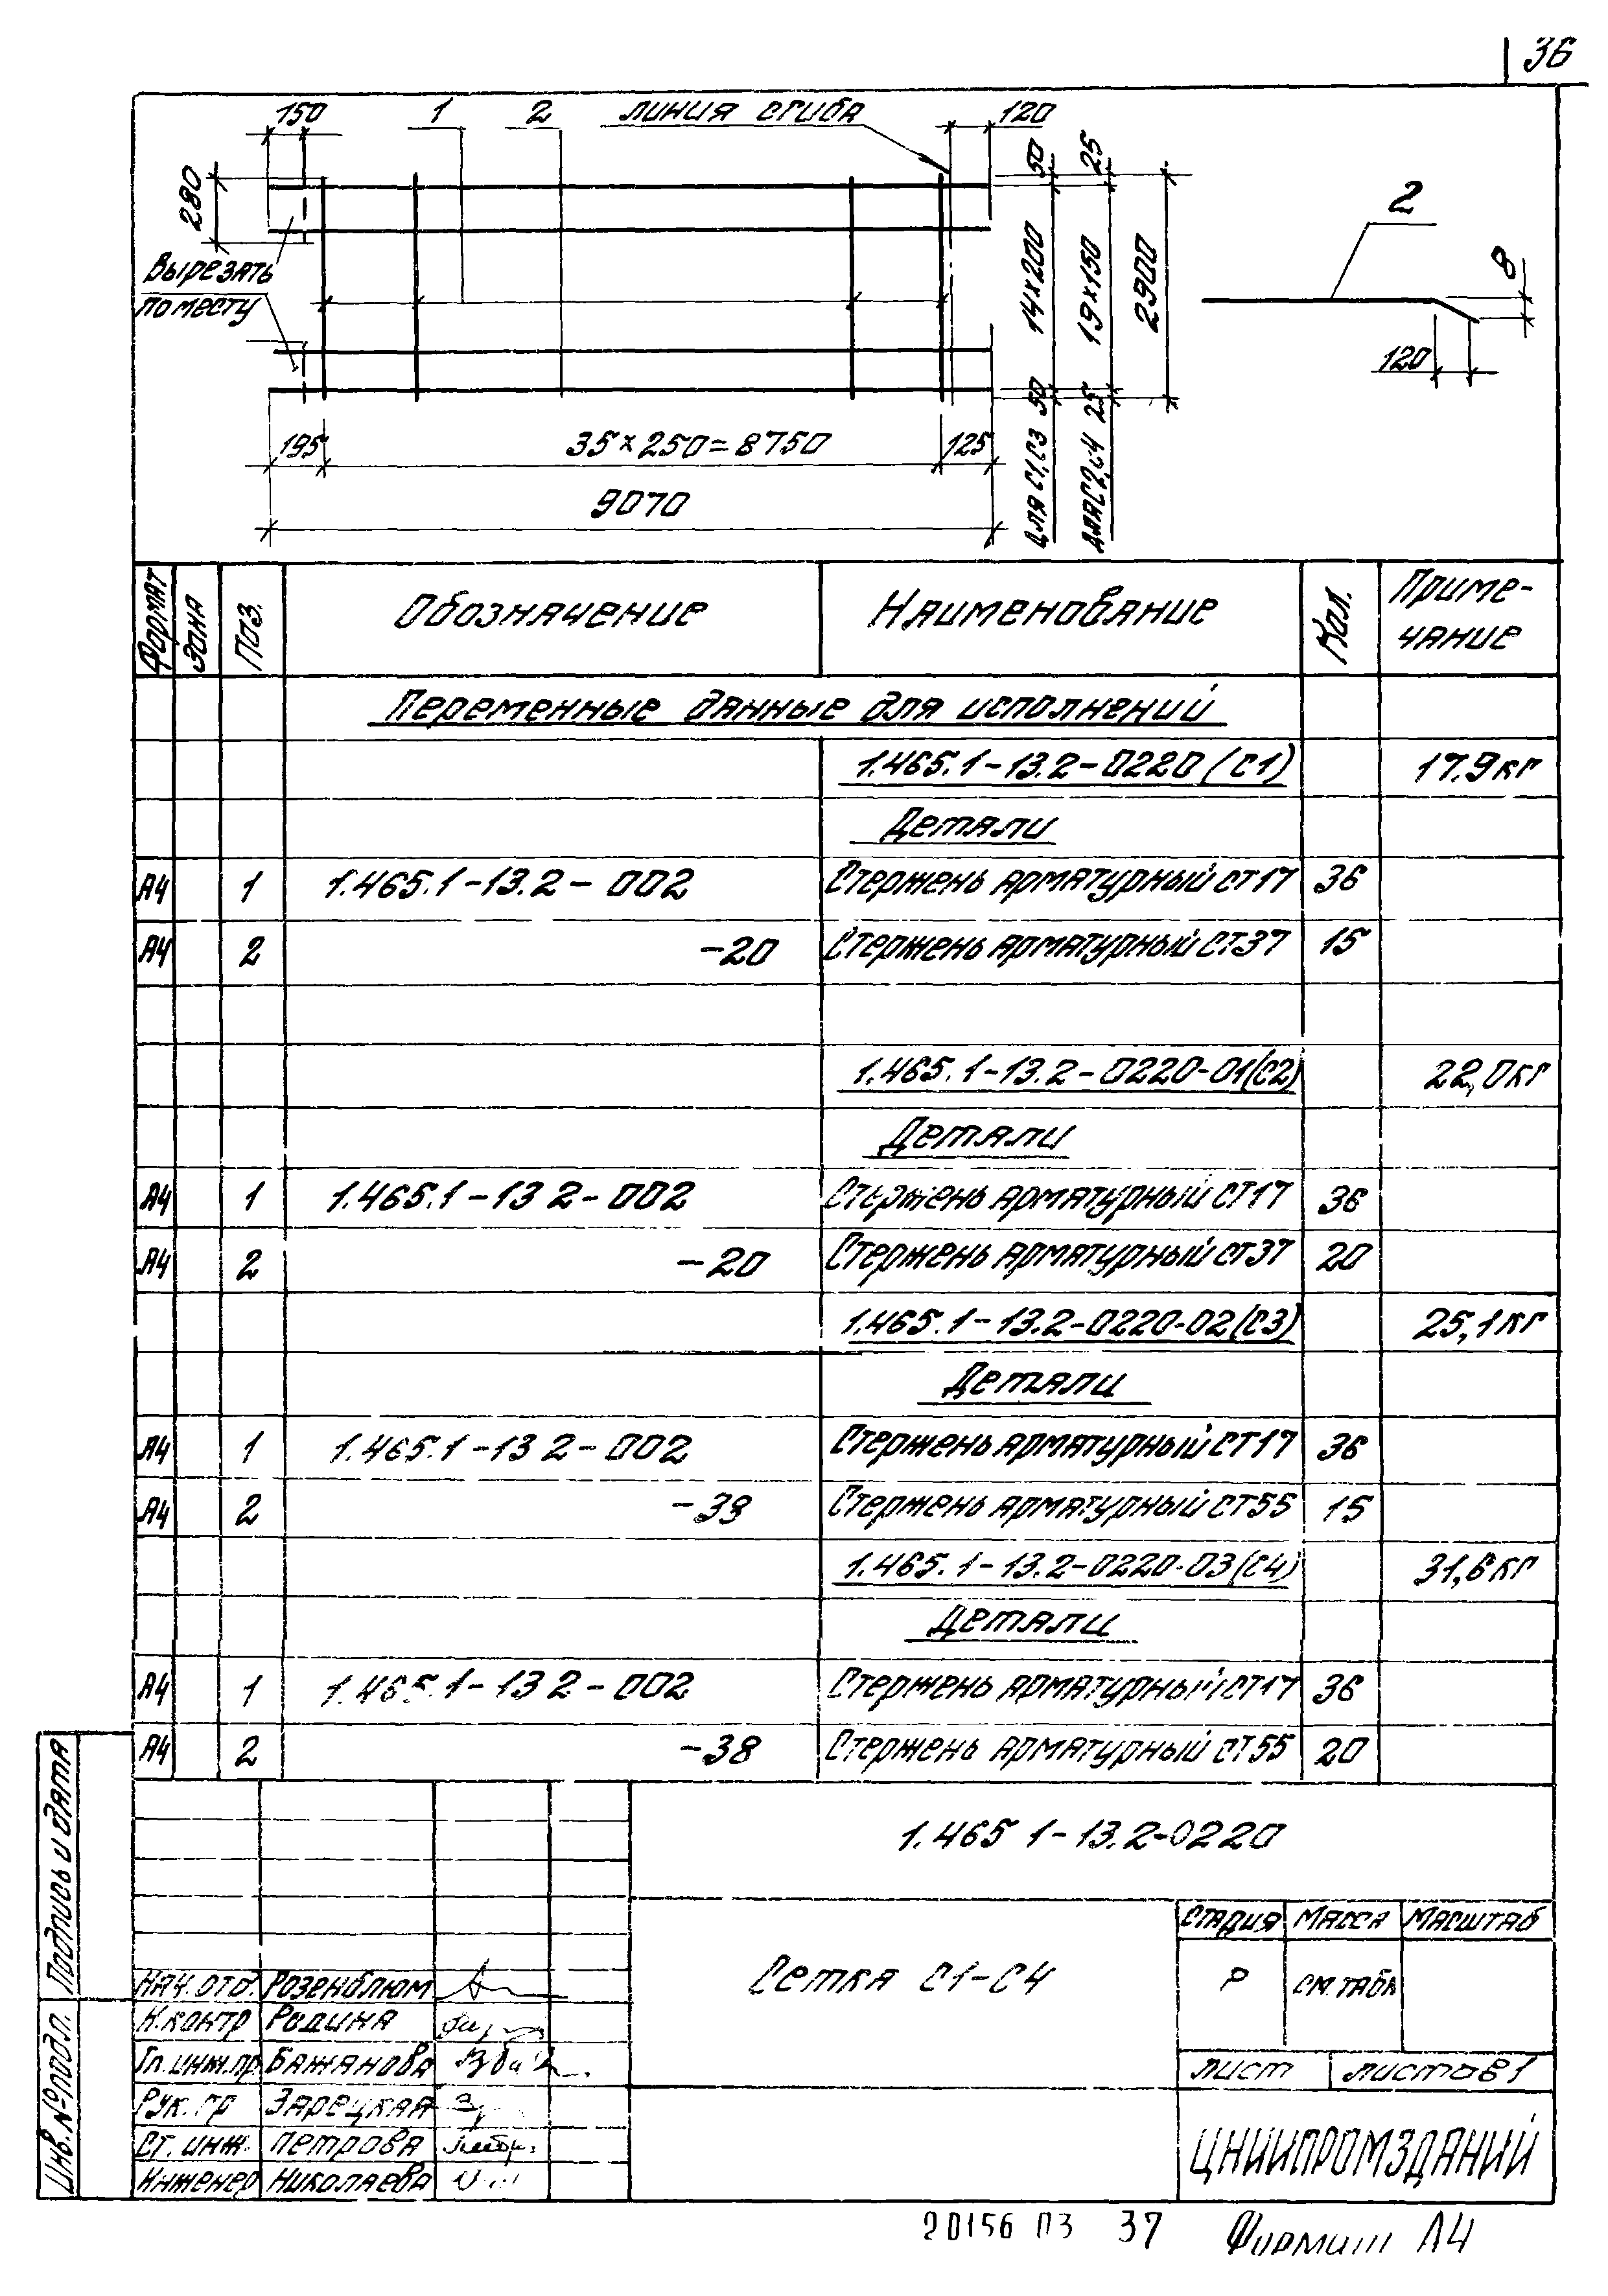 36
150 1 2 линия сгиба 120
280
50 25
14×200 19×150 2900
Вырезать
по месту
2
8
120
195 35×250=8750 125
9070
Для С1,С3 50
Для С2,С4 25
Формат Зона Поз. Обозначение Наименование Кол. Приме-
чание
Переменные данные для исполнений
1.465.1-13.2-0220 (С1) 17.9кг
Детали
А4 1 1.465.1-13.2-002 Стержень арматурный СТ17 36
А4 2 -20 Стержень арматурный СТ37 15
1.465.1-13.2-0220-01(С2) 22,0кг
Детали
А4 1 1.465.1-13 2-002 Стержень арматурный СТ17 36
А4 2 -20 Стержень арматурный СТ37 20
1.465.1-13.2-0220-02(С3) 25,1кг
Детали
А4 1 1.465.1-13 2-002 Стержень арматурный СТ17 36
А4 2 -38 Стержень арматурный СТ55 15
1.465.1-13.2-0220-03(С4) 31,6кг
Детали
А4 1 1.465.1-13 2-002 Стержень арматурный СТ17 36
А4 2 -38 Стержень арматурный СТ55 20
Подпись и дата
Инв.№подл.
1.465 1-13.2-0220
Сетка С1-С4
Стадия Масса Масштаб
Р См.табл
Лист Листов 1
ЦНИИПРОМЗДАНИЙ
Нач.отд. Розенблюм
Н.контр Родина
Гл.инж.пр. Бажанова
Рук.гр Зарецкая
Ст.инж. Петрова
Инженер Николаева
20156 03 37 Формат А4